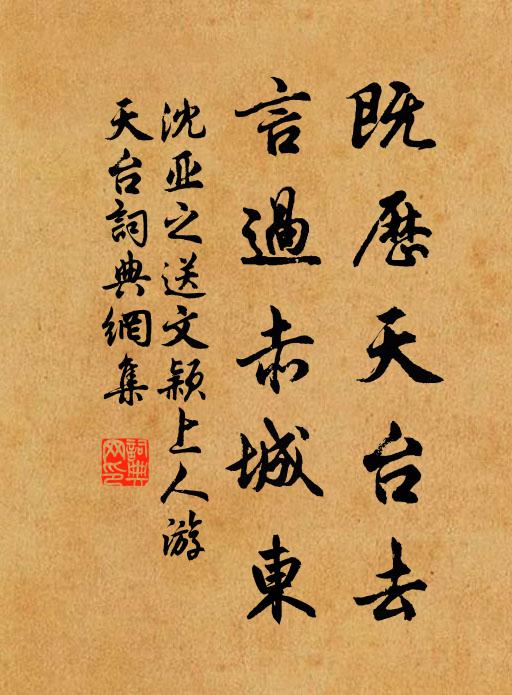 既歷天台去
言過赤城東
沈亚之送文颖上人游
天台詞典網集
詞典网印